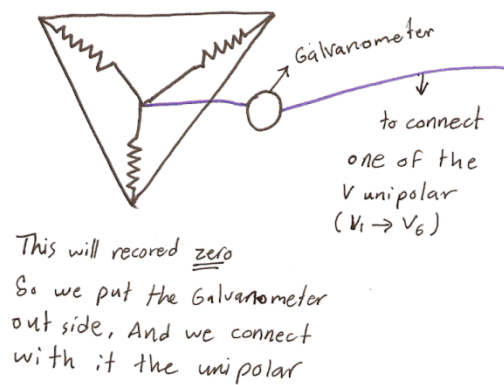 Galvanometer
to connect
one of the
V unipolar
(V₁ → V₆)
This will recored zero
So we put the Galvanometer
out side, And we connect
with it the unipolar